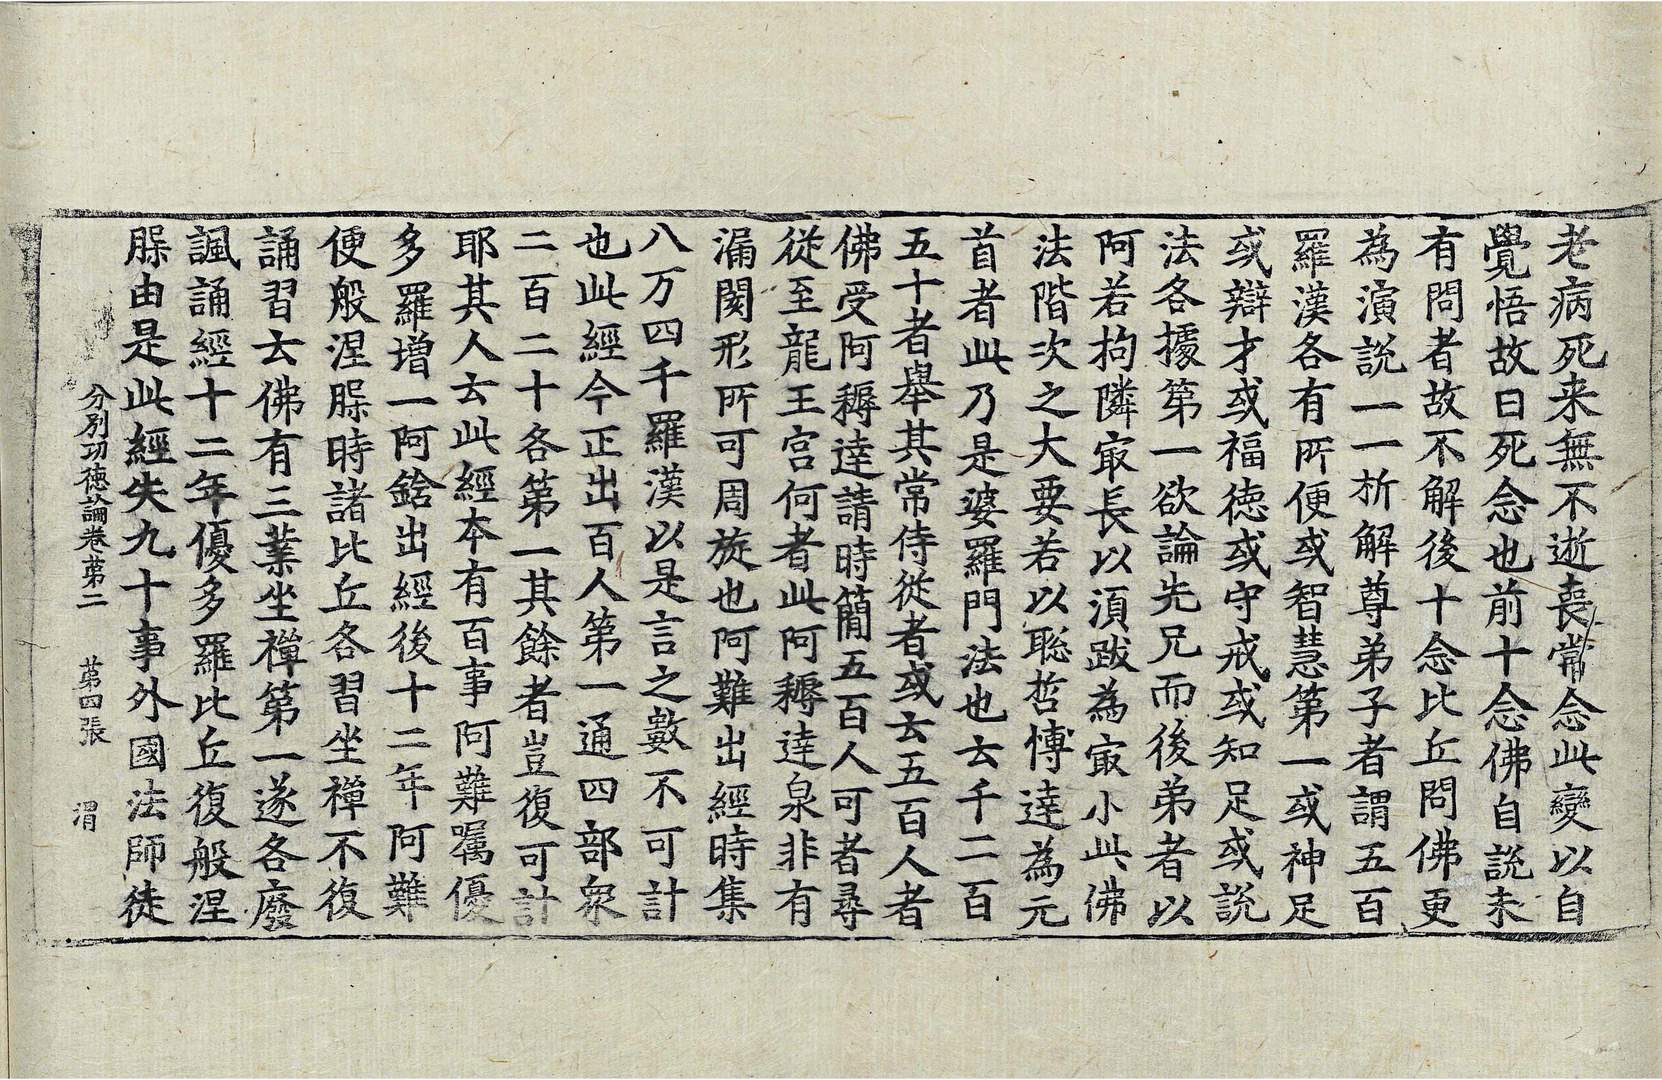 老病死来無不逝喪常念此變以自
覺悟故曰死念也前十念佛自說未
有問者故不解後十念比丘問佛更
為演說一一析解尊弟子者謂五百
羅漢各有所便或智慧第一或神足
或辯才或福德或守戒或知足或說
法各據第一欲論先兄而後弟者以
阿若拘隣㝡長以湏跋為㝡小此佛
法階次之大要若以聡哲愽達為元
首者此乃是婆羅門法也去千二百
五十者舉其常侍從者或云五百人者
佛受阿耨達請時簡五百人可者尋
從至龍王宮何者此阿耨達泉非有
漏閡形所可周旋也阿難出經時集
八万四千羅漢以是言之數不可計
也此經今正出百人第一通四部衆
二百二十各第一其餘者豈復可計
耶其人云此經本有百事阿難囑優
多羅增一阿鋡出經後十二年阿難
便般涅脵時諸比丘各習坐禪不復
誦習云佛有三業坐禪第一遂各廢
諷誦經十二年優多羅比丘復般涅
脵由是此經失九十事外國法師徒
分別功德論卷苐二 苐四張 渭